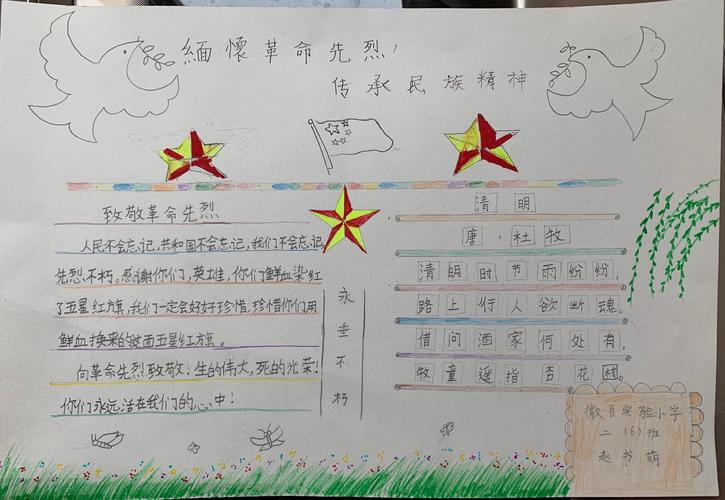 緬懷革命先烈,
传承民族精神
致敬革命先烈
人民不会忘记,共和国不会忘记,我们不会忘记,
先烈不朽。感谢你们,英雄,你们鲜血染红
了五星红旗,我们一定会好好珍惜,珍惜你们用
鲜血换来的这面五星红旗。
向革命先烈致敬!生的伟大,死的光荣!
你们永远活在我们的心中!
永垂不朽
清明
唐·杜牧
清明时节雨纷纷,
路上行人欲断魂。
借问酒家何处有,
牧童遥指杏花村。
实验小学
二(6)班
赵书萌